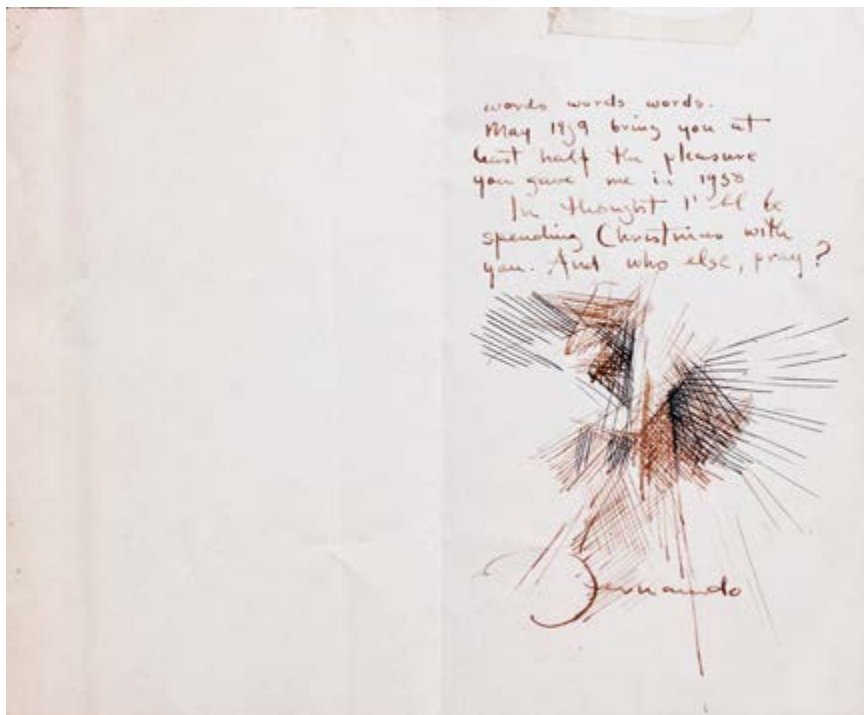 words words words.
May 1959 bring you at
least half the pleasure
you gave me in 1958
In thought I'll be
spending Christmas with
you. And who else, pray?
Fernando